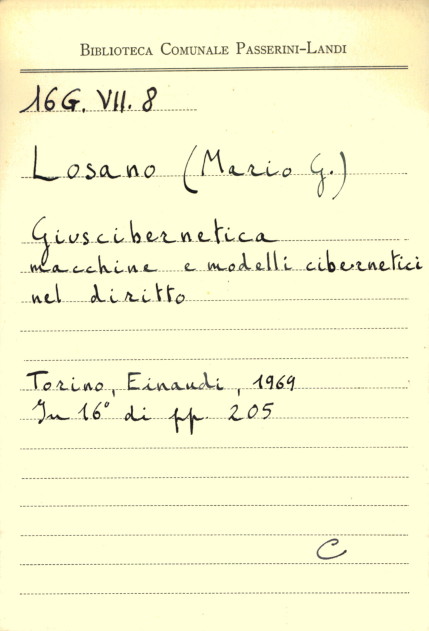 BIBLIOTECA COMUNALE PASSERINI-LANDI
16G. VII. 8
Losano (Mario G.)
Giuscibernetica
macchine e modelli cibernetici
nel diritto
Torino, Einaudi, 1969
In 16° di pp. 205
C